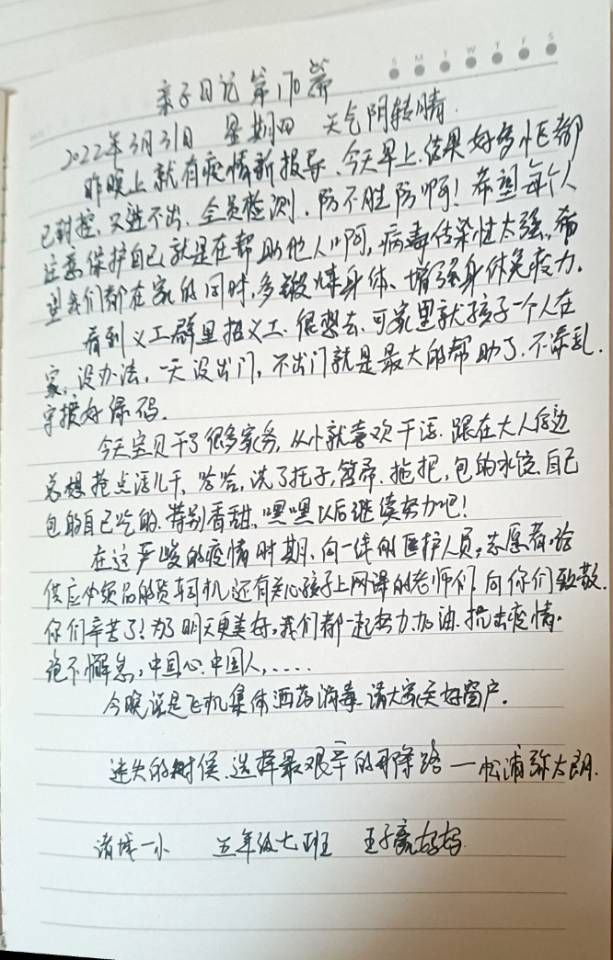 S M T W T F S
亲子日记第170篇
2022年3月31日 星期四 天气阴转晴
昨晚上就有疫情新报导、今天早上、结果好多小区都
已封控、只进不出、全员检测、防不胜防啊！希望每个人
注意保护自己就是在帮助他人"啊，病毒传染性太强、希
望我们都在家的同时，多锻炼身体、增强身体免疫力.
看到义工群里招义工、很想去、可家里就孩子一个人在
家，没办法，一天没出门，不出门就是最大的帮助了、不添乱.
守护好绿码.
今天宝贝干了很多家务，从小就喜欢干活、跟在大人后边
总想抢点活儿干，哈哈，洗了拖子，笤帚、拖把，包的水饺、自己
包的自己吃的、特别香甜、嘿嘿以后继续努力吧！
在这严峻的疫情时期、向一线的医护人员，志愿者，给
供应必须品的货车司机，还有关心孩子上网课的老师们，向你们致敬.
你们辛苦了！为了明天更美好，我们都一起努力、加油、抗击疫情.
绝不懈怠，中国心、中国人，......
今晚说是飞机集体洒药消毒、请大家关好窗户.
迷失的时候、选择最艰辛的那条路 — 松浦弥太郎.
诸城一小 五年级七班 王子 妈妈